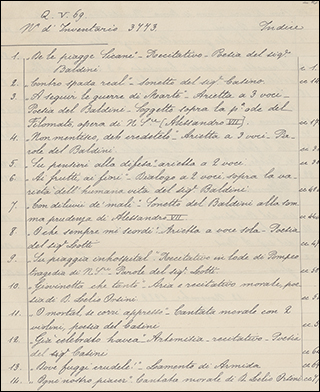 Q. V. 69.
N.º d'Inventario 3773. Indice
1. "Ne le piagge Sicane" Recitativo - Poesia del sig.r
Baldini
2. "Contro spada real" Sonetto del sig.r Casino
3. "A seguir le guerre di Marte" Arietta a 3 voci
Poesia del Baldini. Soggetto sopra la p.a ode del
Filomate, opera di N. S.re (Alessandro VII)
4. "Non mentites, deh credetelo" Arietta a 3 voci. Pa-
role del Baldini.
5. "Su pensieri alla difesa" arietta a 2 voci
6. "Ai frutti, ai fiori" Dialogo a 2 voci, sopra la va-
rietà dell'humana vita del sig.r Baldini
7. "Con diluvii di mali" Sonetto del Baldini alla som-
ma prudenza di Alessandro VII
8. "O che sempre mi scordi" Arietta a voce sola - Poesia
del sig.r Lotti
9. "Su piaggia inhospital" Recitativo in lode di Pompeo
tragedia di N. S.re Parole del sig.r Lotti
10. "Giovinetto che tenti" Aria e recitativo morale, poe-
sia di D. Lelio Orsini
11. "O mortal, se corri appresso" Cantata morale con 2
violini, poesia del Casini
12. "Già celebrato havea" Artemisia - recitativo - Poesia
del sig.r Casini
13. "Dove fuggi crudele" Lamento di Armida
14. "Ogni nostro piacer" Cantata morale di D. Lelio Orsini